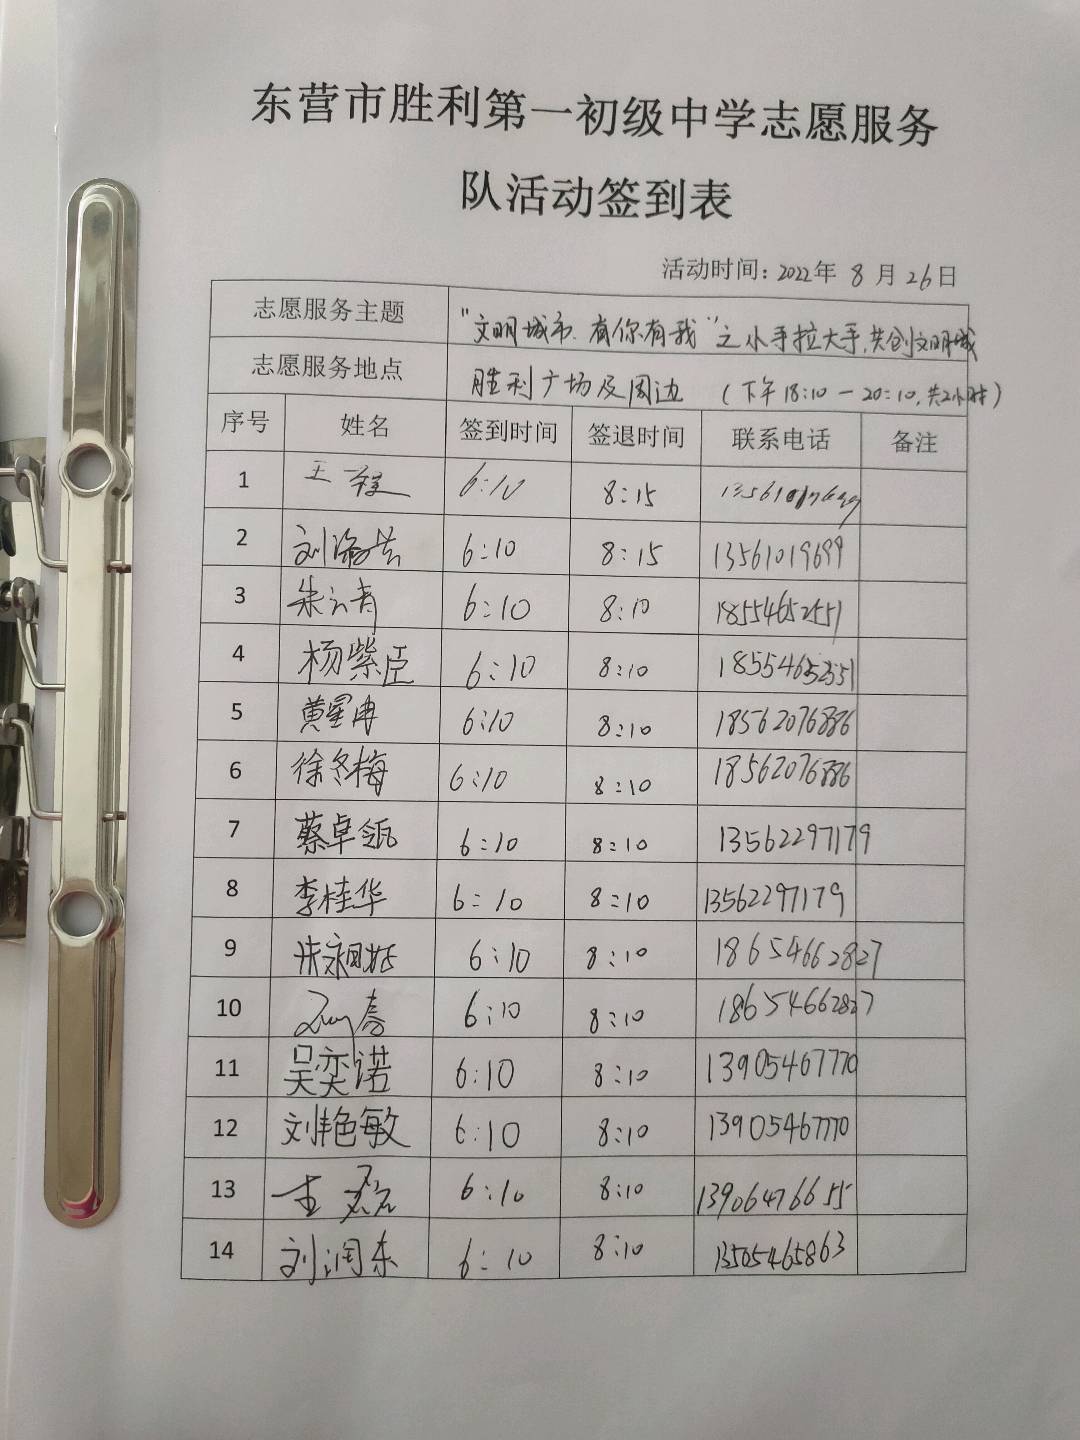 东营市胜利第一初级中学志愿服务
队活动签到表
活动时间：2022年 8月26日
志愿服务主题 "文明城市.有你有我"之小手拉大手,共创文明城
志愿服务地点 胜利广场及周边 （下午18:10－20:10,共2小时）
序号 姓名 签到时间 签退时间 联系电话 备注
1 王 6:10 8:15
2 刘海芸 6:10 8:15 13561019699
3 朱云青 6:10 8:10 18554652551
4 杨紫臣 6:10 8:10
5 黄星冉 6:10 8:10 18562076886
6 徐冬梅 6:10 8:10 18562076886
7 蔡卓瓴 6:10 8:10 13562297179
8 李桂华 6:10 8:10 13562297179
9 6:10 8:10 18654662827
10 6:10 8:10 18654662827
11 吴奕诺 6:10 8:10 13905467770
12 刘艳敏 6:10 8:10 13905467770
13 6:10 8:10 13906476655
14 刘润东 6:10 8:10 13505465863